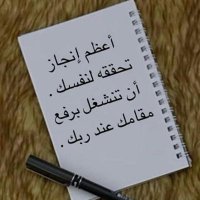 أعظم إنجاز
تحققه لنفسك .
أن تنشغل برفع
مقامك عند ربك .